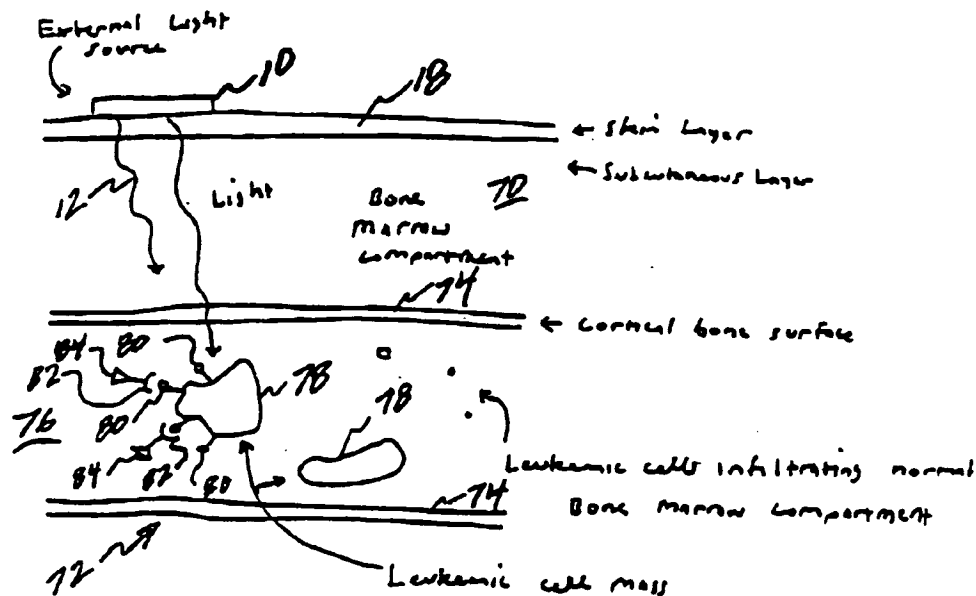 External Light
source
10
18
← Skin Layer
← Subcutaneous Layer
12
Light
70
Bone
Marrow
compartment
74
← Cortical bone surface
84
80
82
78
80
76
78
84
82
80
Leukemic cells infiltrating normal
Bone Marrow compartment
74
72
Leukemic cell mass